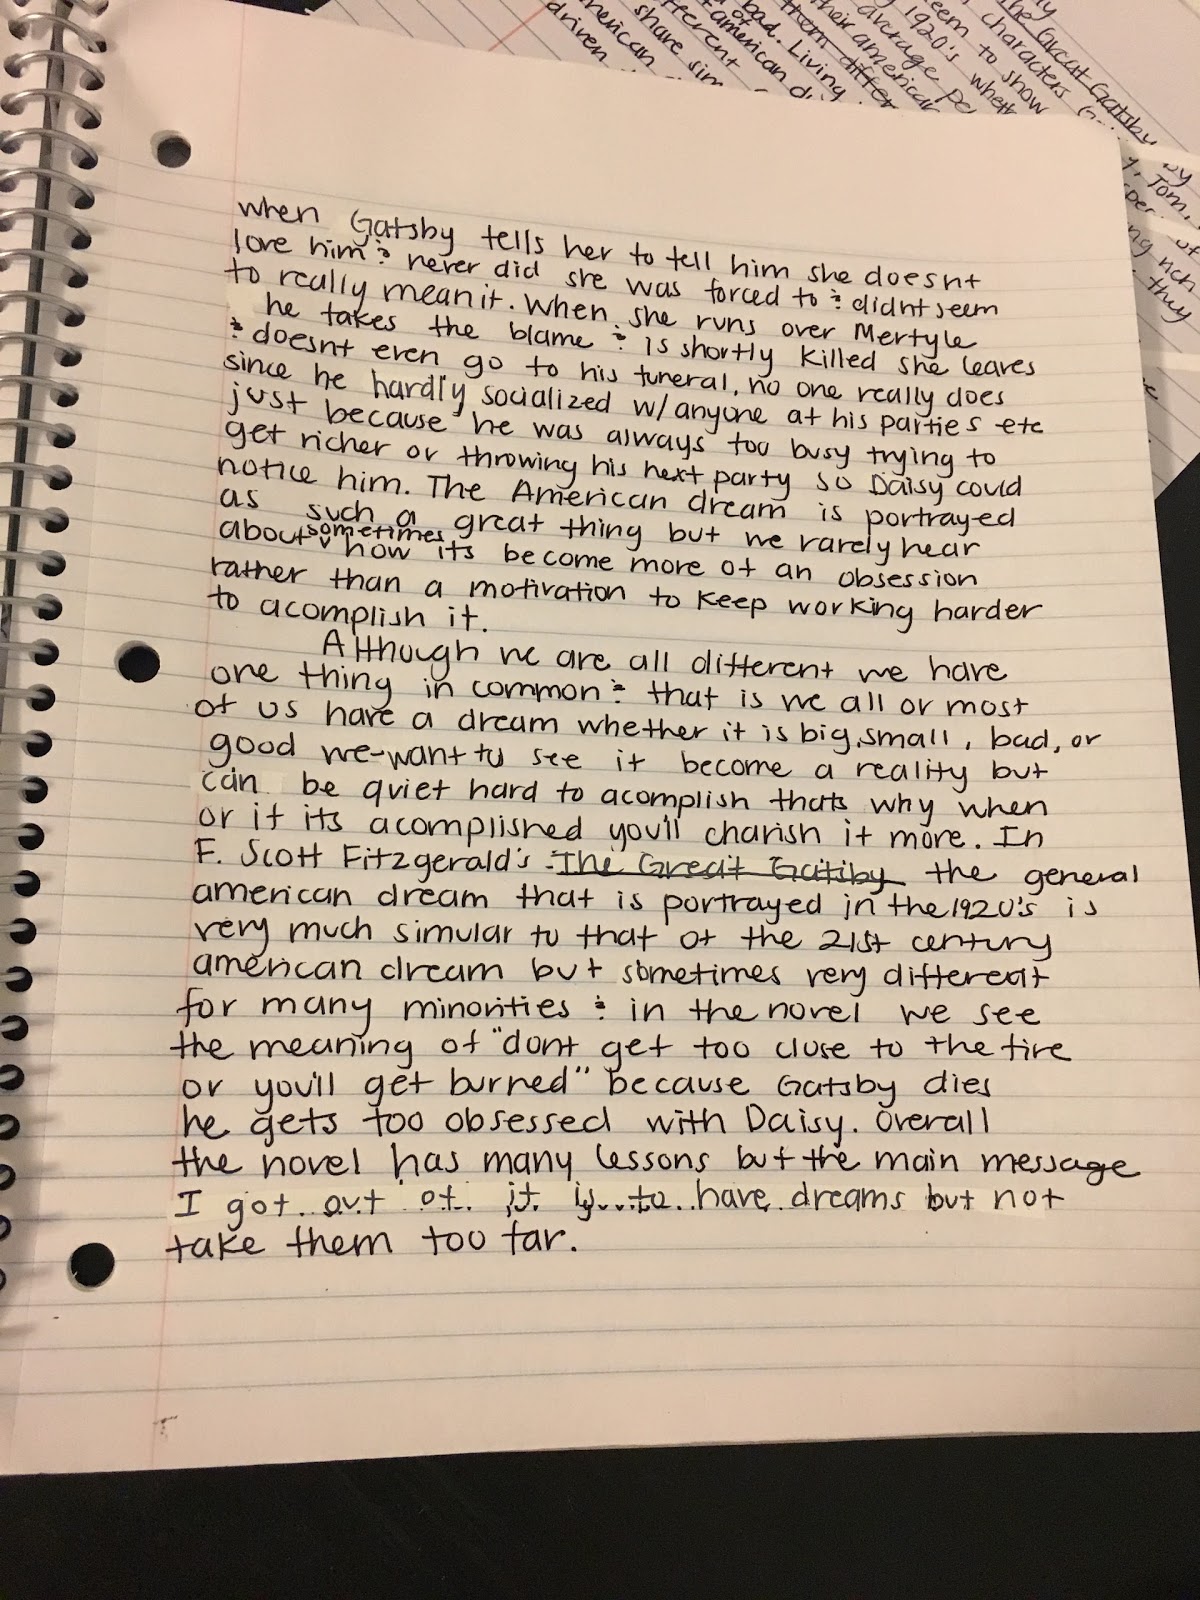 when Gatsby tells her to tell him she doesnt
love him & never did she was forced to & didnt seem
to really mean it. When she runs over Mertyle
he takes the blame & is shortly killed she leaves
& doesnt even go to his funeral, no one really does
since he hardly socialized w/anyone at his parties etc
just because he was always too busy trying to
get richer or throwing his next party so Daisy could
notice him. The American dream is portrayed
as such a great thing but we rarely hear
about sometimes how its become more of an obsession
rather than a motivation to keep working harder
to acomplish it.
Although we are all different we have
one thing in common & that is we all or most
of us have a dream whether it is big, small, bad, or
good we want to see it become a reality but
can be quiet hard to acomplish thats why when
or if its acomplished you'll charish it more. In
F. Scott Fitzgerald's The Great Gatsby the general
american dream that is portrayed in the 1920's is
very much simular to that of the 21st century
american dream but sometimes very different
for many minorities & in the novel we see
the meaning of "dont get too close to the fire
or you'll get burned" because Gatsby dies
he gets too obsessed with Daisy. Overall
the novel has many lessons but the main message
I got out of it is to have dreams but not
take them too far.
driven
american
share sim
different
american
bad. Living
them differ
their american
average pe
1920's wheth
seem to show
characters
The Great Gatsby
by
Tom,
of
rich
they